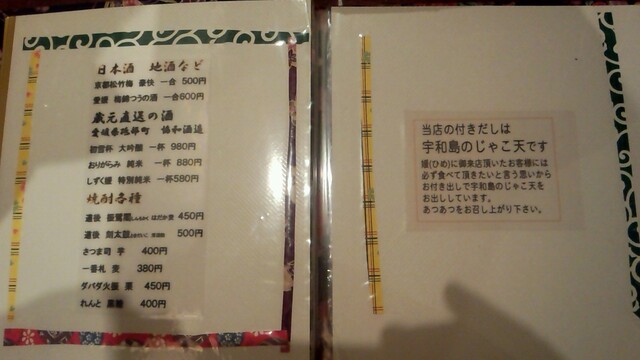 日本酒 地酒など
京都松竹梅 豪快 一合 500円
愛媛 梅錦つうの酒 一合600円
蔵元直送の酒
愛媛県砥部町 協和酒造
初雪杯 大吟醸 一杯 980円
おりがらみ 純米 一杯 880円
しずく媛 特別純米 一杯580円
焼酎各種
道後 はだか麦 450円
道後 刻太鼓 500円
さつま司 芋 400円
一番札 麦 380円
ダバダ火振 栗 450円
れんと 黒糖 400円
当店の付きだしは
宇和島のじゃこ天です
媛(ひめ)に御来店頂いたお客様には
必ず食べて頂きたいと言う思いから
お付き出しで宇和島のじゃこ天を
お出ししています。
あつあつをお召し上がり下さい。